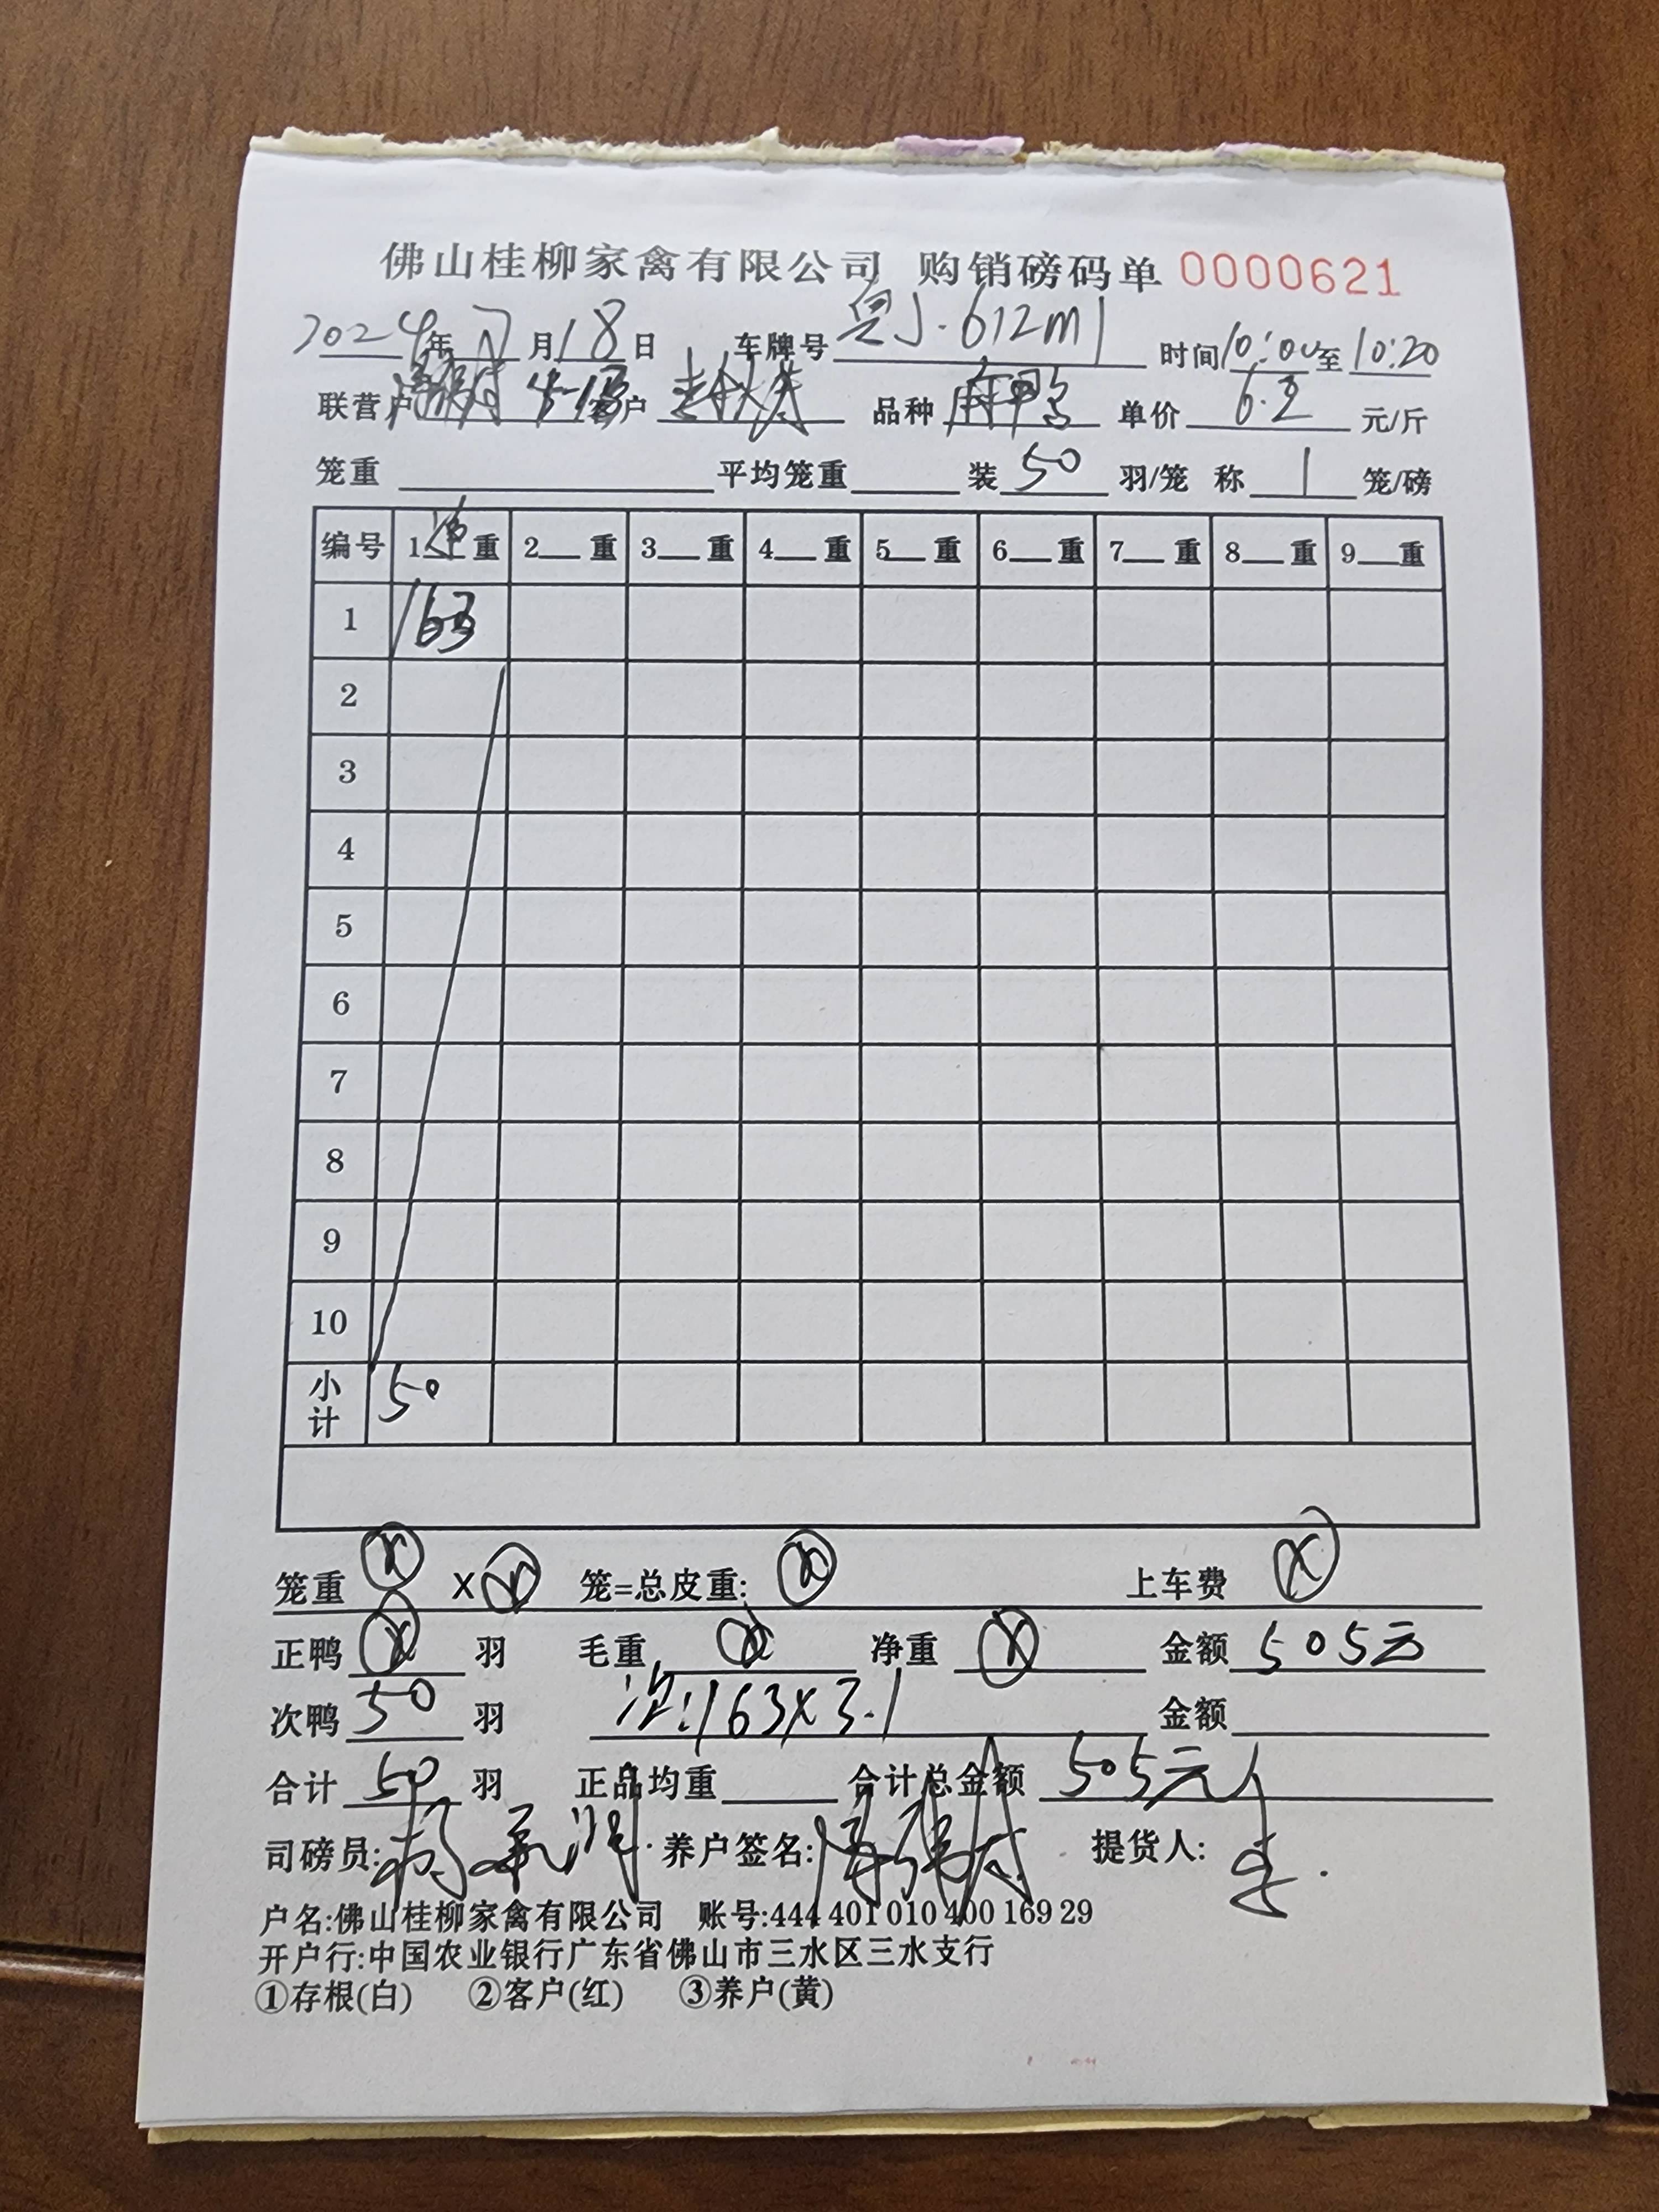 佛山桂柳家禽有限公司 购销磅码单 0000621
2024年7月18日 车牌号 粤J·612M1 时间10:00至10:20
联营户 4-1 客户 品种 麻鸭 单价 6.2 元/斤
笼重 平均笼重 装 50 羽/笼 称 1 笼/磅
编号 1 净 重 2 重 3 重 4 重 5 重 6 重 7 重 8 重 9 重
1 163
2
3
4
5
6
7
8
9
10
小计 50
笼重 X X X 笼=总皮重: X 上车费 X
正鸭 X 羽 毛重 X 净重 X 金额 505元
次鸭 50 羽 次:163X3.1 金额
合计 50 羽 正品均重 合计总金额 505元
司磅员: 养户签名: 提货人:
户名:佛山桂柳家禽有限公司 账号:444 401 010 400 169 29
开户行:中国农业银行广东省佛山市三水区三水支行
①存根(白) ②客户(红) ③养户(黄)